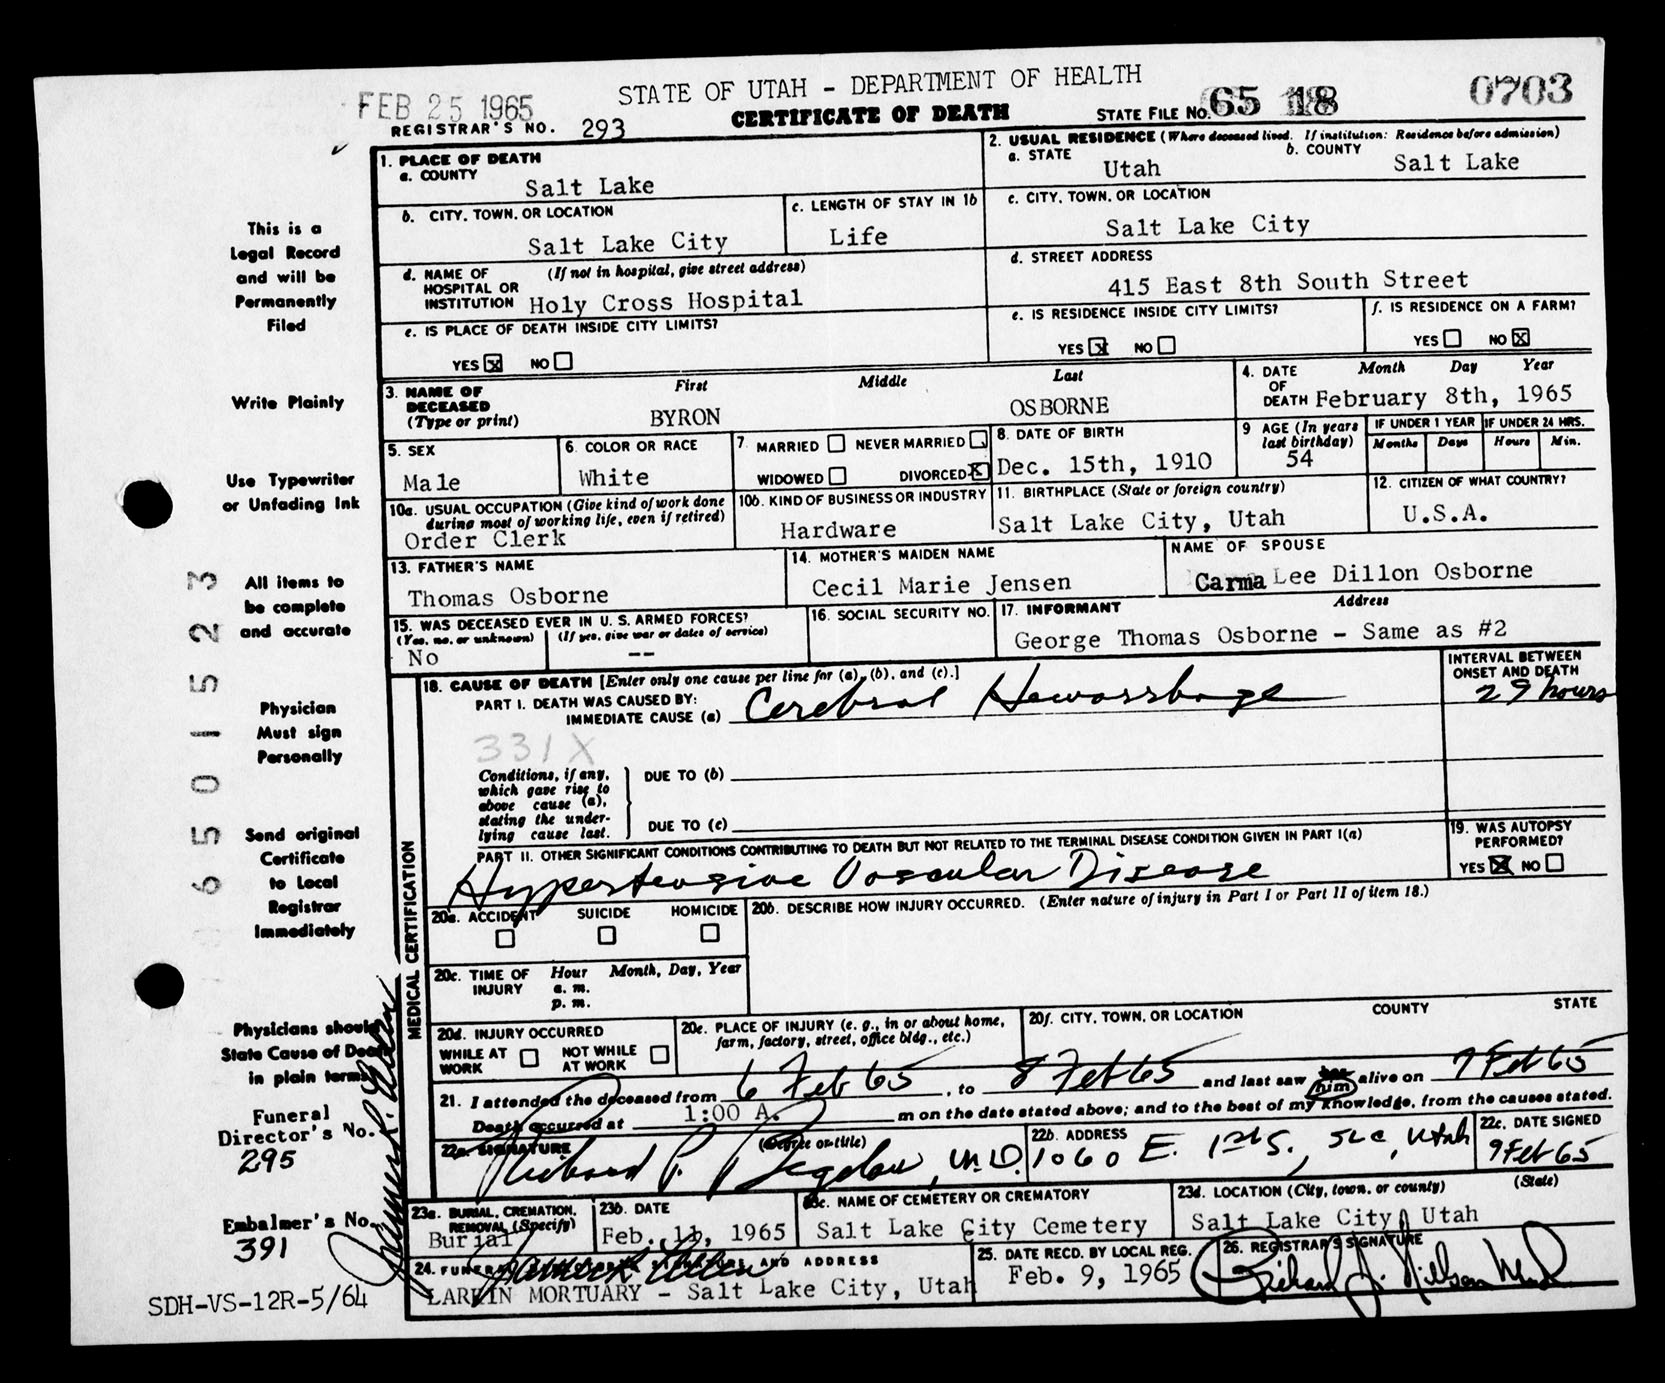 STATE OF UTAH - DEPARTMENT OF HEALTH
FEB 25 1965
CERTIFICATE OF DEATH
STATE FILE NO. 65 18 0703
REGISTRAR'S NO. 293
1. PLACE OF DEATH
a. COUNTY
Salt Lake
2. USUAL RESIDENCE (Where deceased lived. If institution: Residence before admission)
a. STATE Utah
b. COUNTY Salt Lake
b. CITY, TOWN, OR LOCATION
Salt Lake City
c. LENGTH OF STAY IN 1b
Life
c. CITY, TOWN, OR LOCATION
Salt Lake City
d. NAME OF HOSPITAL OR INSTITUTION (If not in hospital, give street address)
Holy Cross Hospital
d. STREET ADDRESS
415 East 8th South Street
e. IS PLACE OF DEATH INSIDE CITY LIMITS?
YES X NO
e. IS RESIDENCE INSIDE CITY LIMITS?
YES X NO
f. IS RESIDENCE ON A FARM?
YES NO X
3. NAME OF DECEASED (Type or print)
First Middle Last
BYRON OSBORNE
4. DATE OF DEATH Month Day Year
February 8th, 1965
5. SEX
Male
6. COLOR OR RACE
White
7. MARRIED NEVER MARRIED
WIDOWED DIVORCED X
8. DATE OF BIRTH
Dec. 15th, 1910
9 AGE (In years last birthday)
54
IF UNDER 1 YEAR
Months Days
IF UNDER 24 HRS.
Hours Min.
10a. USUAL OCCUPATION (Give kind of work done during most of working life, even if retired)
Order Clerk
10b. KIND OF BUSINESS OR INDUSTRY
Hardware
11. BIRTHPLACE (State or foreign country)
Salt Lake City, Utah
12. CITIZEN OF WHAT COUNTRY?
U.S.A.
13. FATHER'S NAME
Thomas Osborne
14. MOTHER'S MAIDEN NAME
Cecil Marie Jensen
NAME OF SPOUSE
Carma Lee Dillon Osborne
15. WAS DECEASED EVER IN U. S. ARMED FORCES?
(Yes, no, or unknown) (If yes, give war or dates of service)
No --
16. SOCIAL SECURITY NO.
17. INFORMANT Address
George Thomas Osborne - Same as #2
18. CAUSE OF DEATH [Enter only one cause per line for (a), (b), and (c).]
PART I. DEATH WAS CAUSED BY:
IMMEDIATE CAUSE (a) Cerebral Hemorrhage
INTERVAL BETWEEN ONSET AND DEATH
29 hours
331X
Conditions, if any, which gave rise to above cause (a), stating the underlying cause last.
DUE TO (b)
DUE TO (c)
PART II. OTHER SIGNIFICANT CONDITIONS CONTRIBUTING TO DEATH BUT NOT RELATED TO THE TERMINAL DISEASE CONDITION GIVEN IN PART I(a)
Hypertensive Vascular Disease
19. WAS AUTOPSY PERFORMED?
YES X NO
20a. ACCIDENT SUICIDE HOMICIDE
20b. DESCRIBE HOW INJURY OCCURRED. (Enter nature of injury in Part I or Part II of item 18.)
20c. TIME OF INJURY Hour Month, Day, Year
a. m.
p. m.
20d. INJURY OCCURRED
WHILE AT WORK NOT WHILE AT WORK
20e. PLACE OF INJURY (e. g., in or about home, farm, factory, street, office bldg., etc.)
20f. CITY, TOWN, OR LOCATION COUNTY STATE
21. I attended the deceased from 6 Feb 65, to 8 Feb 65 and last saw him alive on 7 Feb 65
Death occurred at 1:00 A. m on the date stated above; and to the best of my knowledge, from the causes stated.
22a. SIGNATURE (Degree or title)
Richard P. Bigelow, M.D.
22b. ADDRESS
1060 E. 1st S., SLC, Utah
22c. DATE SIGNED
9 Feb 65
23a. BURIAL, CREMATION, REMOVAL (Specify)
Burial
23b. DATE
Feb. 11, 1965
23c. NAME OF CEMETERY OR CREMATORY
Salt Lake City Cemetery
23d. LOCATION (City, town, or county) (State)
Salt Lake City, Utah
24. AND ADDRESS
LARKIN MORTUARY - Salt Lake City, Utah
25. DATE RECD. BY LOCAL REG.
Feb. 9, 1965
26. REGISTRAR'S SIGNATURE
Richard J. Nielsen
MEDICAL CERTIFICATION
This is a
Legal Record
and will be
Permanently
Filed
Write Plainly
Use Typewriter
or Unfading Ink
All items to
be complete
and accurate
Physician
Must sign
Personally
Send original
Certificate
to Local
Registrar
Immediately
Physicians should
State Cause of Death
in plain terms
Funeral
Director's No.
295
Embalmer's No.
391
SDH-VS-12R-5/64